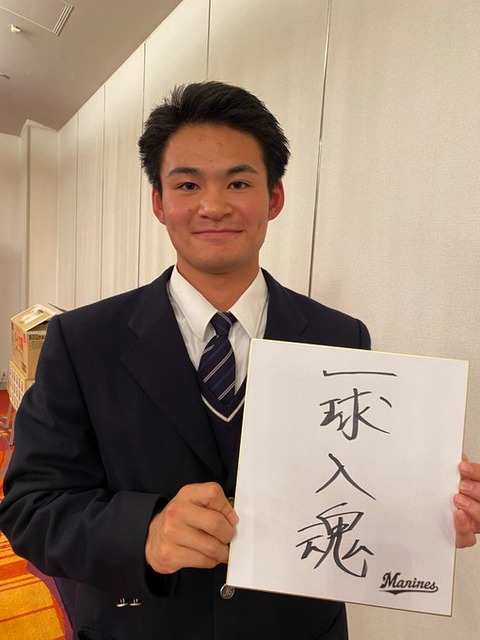 一球入魂
Marines